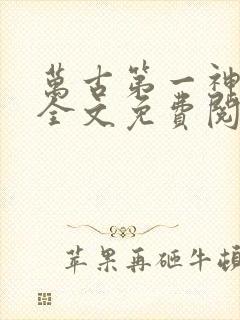 萬古第一神
全文免費閱
苹果再砸牛頓